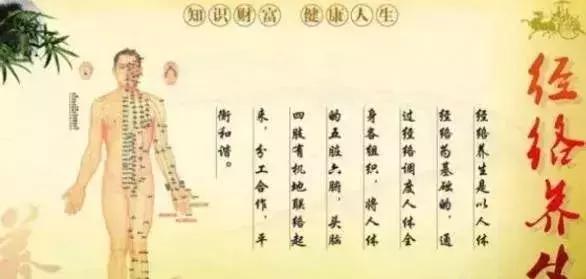 知识财富 健康人生
经络养生
经络养生是以人体
经络为基础的，通
过经络调度人体全
身各组织，将人体
的五脏六腑，头脑
四肢有机地联络起
来，分工合作，平
衡和谐。
养